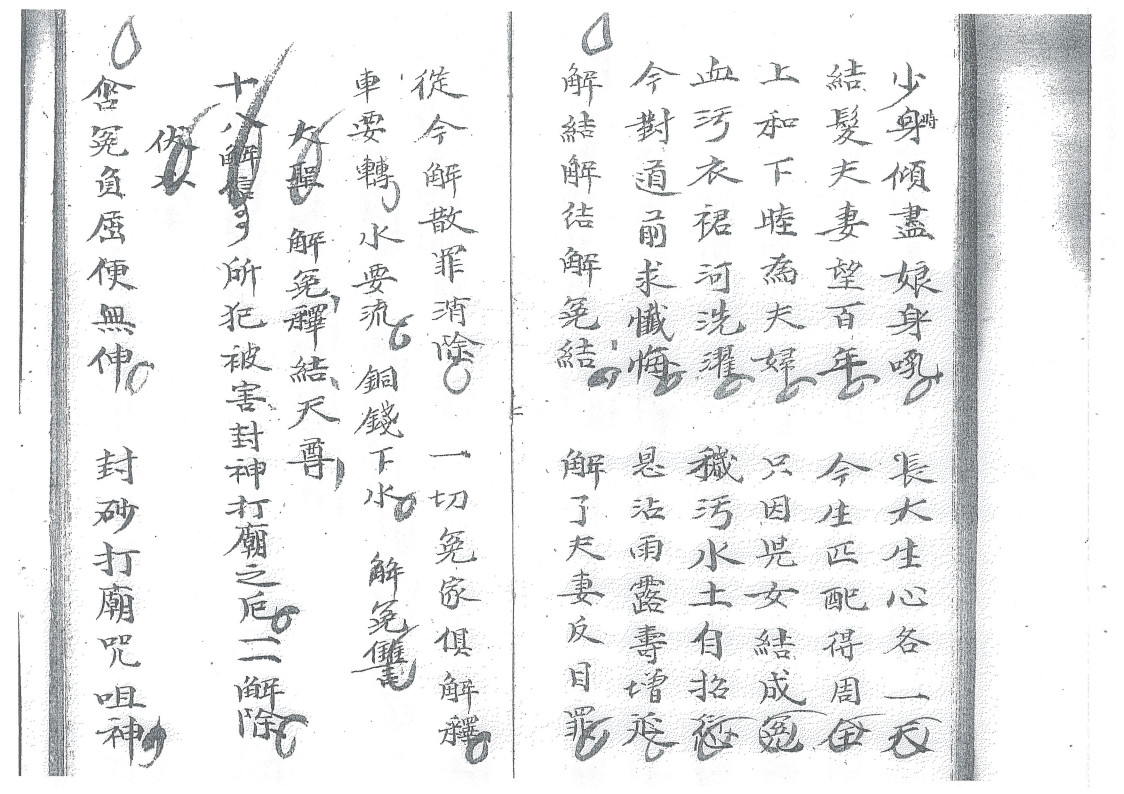 少時身傾盡娘身乳 長大生心各一天
結髮夫妻望百年 今生匹配得周全
上和下睦為夫婦 只因児女結成冤
血污衣裙河洗濯 穢污水土自招愆
今對道前求懺悔 恩沾雨露壽增延
解結解结解冤結 解了夫妻反目罪
從今解散罪消除 一切冤家俱解釋
車要轉 水要流 銅錢下水 解冤讐
大聖 解冤釋結天尊
十八解信 所犯被害封神打廟之厄一一解除
伏以
含冤負屈便無伸 封砂打廟咒咀神